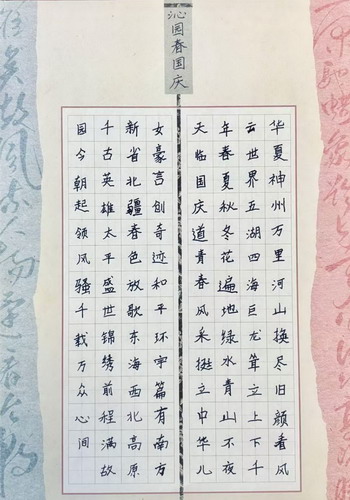 沁园春国庆
华夏神州万里河山换尽旧颜看风
云世界五湖四海巨龙耸立上下千
年春夏秋冬花遍地绿水青山不夜
天临国庆道青春风采挺立中华儿
女豪言创奇迹和平环宇篇有南方
新省北疆春色放歌东海西北高原
千古英雄太平盛世锦绣前程满故
园今朝起领风骚千载万众心间